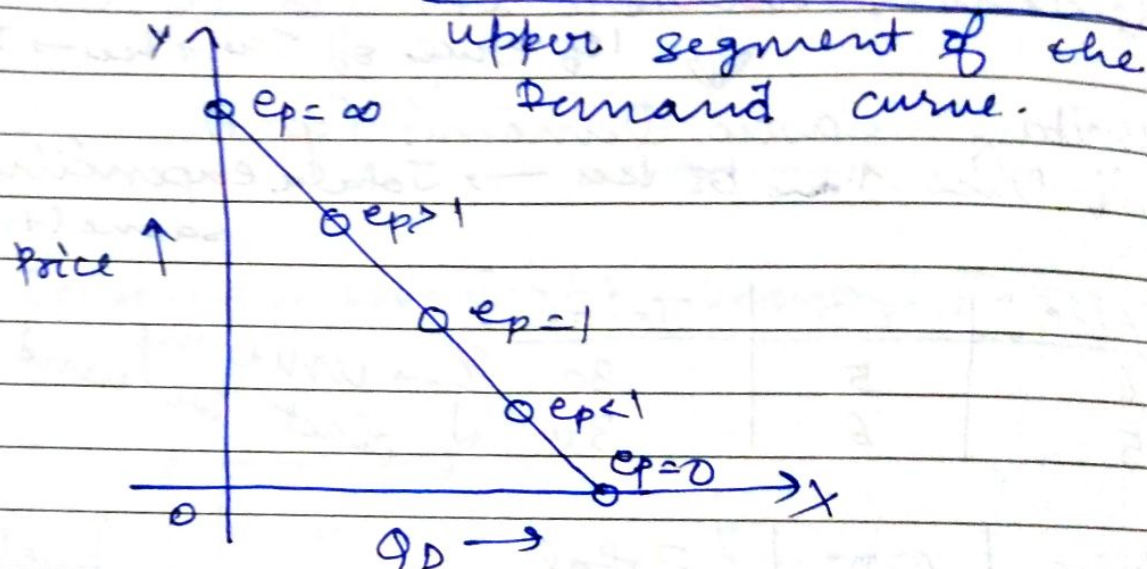 upper segment of the
Demand curve.
Y
ep = ∞
ep > 1
Price ↑
ep = 1
ep < 1
ep = 0
X
O
QD →